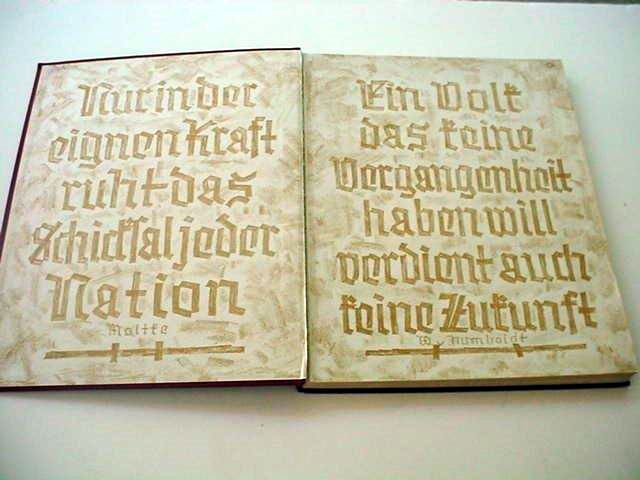 Nur in der
eignen Kraft
ruht das
Schicksal jeder
Nation
Moltke
Ein Volk
das keine
Vergangenheit
haben will
verdient auch
keine Zukunft
W. v. Humboldt